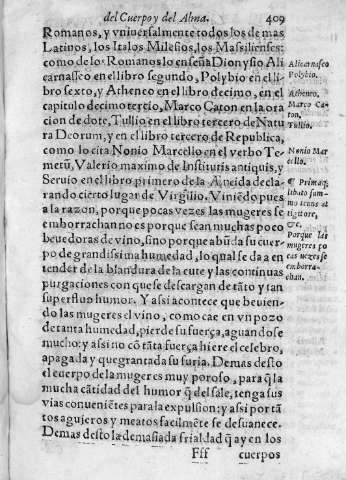 del Cuerpo y del Alma. 409
Romanos, y vniuersalmente todos los demas
Latinos, los Italos Milesios, los Massilienses:
como de los Romanos lo enseña Dionysio Ali
carnasseo en el libro segundo, Polybio en el li-
bro sexto, y Atheneo en el libro decimo, en el
capitulo decimo tercio, Marco Caton en la ora
cion de dote, Tullio en el libro tercero de Natu
ra Deorum, y en el libro tercero de Republica,
como lo cita Nonio Marcello en el verbo Te-
metũ, Valerio maximo de Institutis antiquis, y
Seruio en el libro primero de la Aneida decla-
rando cierto lugar de Virgilio. Viniẽdo pues
a la razon, porque pocas vezes las mugeres se
emborrachan no es porque sean muchas poco
beuedoras de vino, sino porque abũda su cuer-
po de grandissima humedad, lo qual se da a en
tender de la blandura de la cute y las continuas
purgaciones con que se descargan de tãto y tan
superfluo humor. Y assi acontece que beuien-
do las mugeres el vino, como cae en vn pozo
de tanta humedad, pierde su fuerça, aguandose
mucho: y assi no cõ tãta fuerça hiere el celebro,
apagada y quegrantada su furia. Demas desto
el cuerpo de la muger es muy poroso, para q̃ la
mucha cãtidad del humor q̃ del sale, tenga sus
vias conueniẽtes para la expulsion: y assi por tã
tos agujeros y meatos facilmẽte se desuanece.
Demas desto la demasiada frialdad q̃ ay en los
Fff cuerpos
Alicarnasco
Polybio.
Atheneo.
Marco Ca-
ton.
Tullio.
Nonio Mar
cello.
¶ Prima q̃
libato sum-
mo tenus at
tigit ore,
&c.
Porque las
mugeres po
cas vezes se
emborra-
chan.